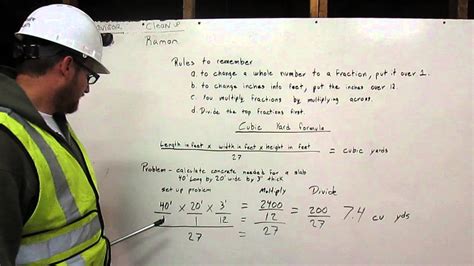 Clean up
Raman
Rules to remember
a. to change a whole number to a fraction, put it over 1.
b. to change inches into feet, put the inches over 12
c. You multiply fractions by multiplying across.
d. Divide the top fractions first.
Cubic Yard Formula
Length in feet x width in feet x height in feet = cubic yards
27
Problem - calculate concrete needed for a slab
40' long by 20' wide by 3" thick
set up problem Multiply Divide
40' x 20' x 3" = 2400 = 200 7.4 cu yds
1 1 12 = 12 27
27 27